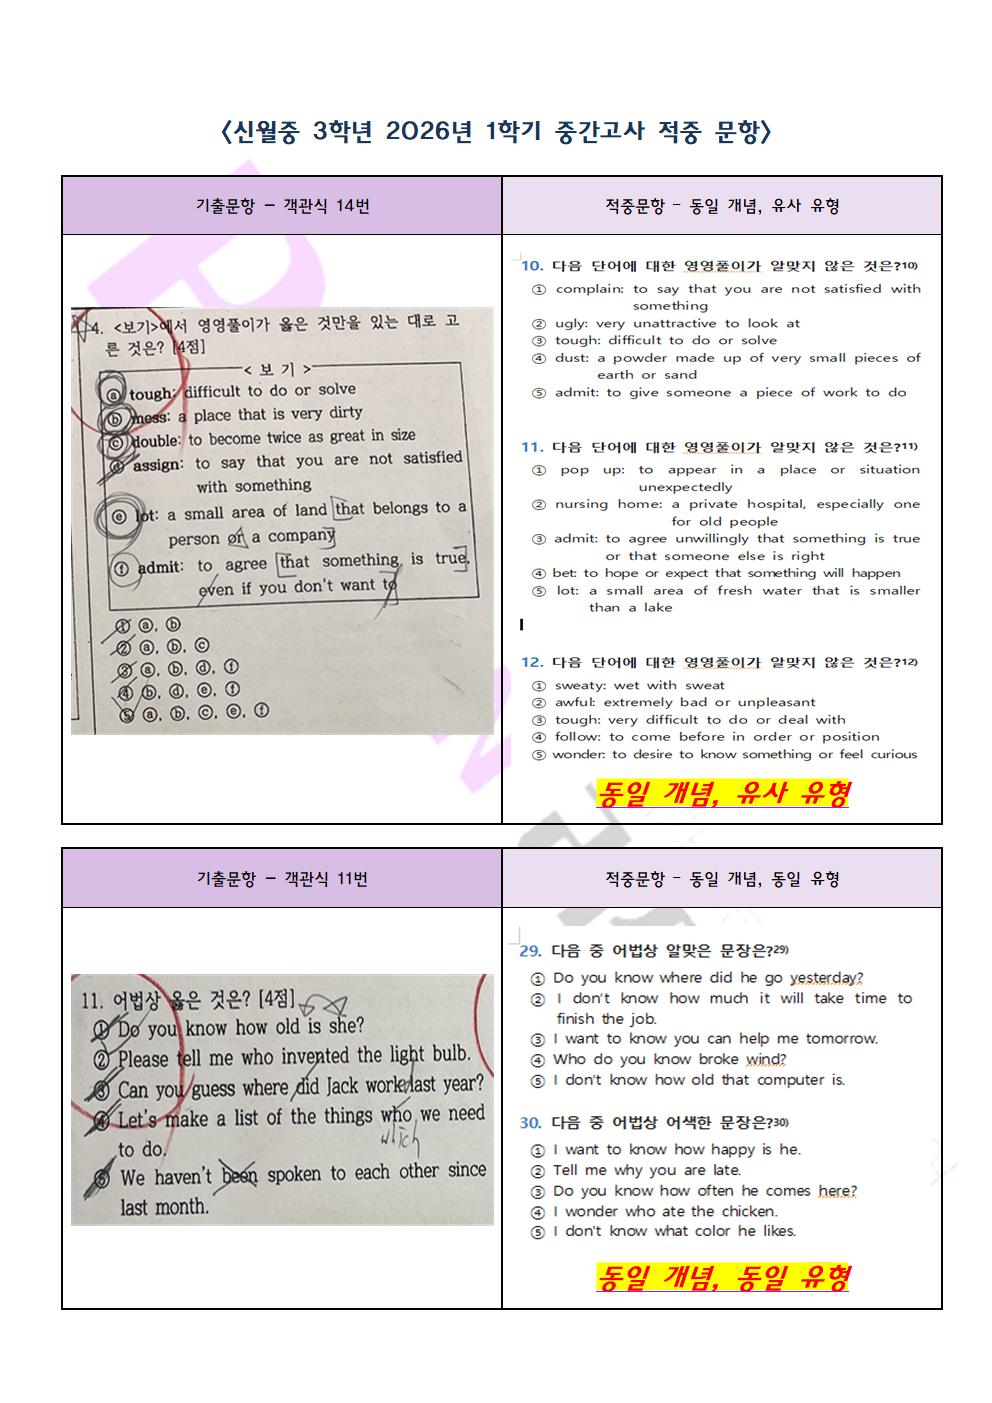 <신월중 3학년 2026년 1학기 중간고사 적중 문항>
기출문항 - 객관식 14번
적중문항 - 동일 개념, 유사 유형
4. <보기>에서 영영풀이가 옳은 것만을 있는 대로 고
른 것은? [4점]
< 보 기 >
ⓐ tough: difficult to do or solve
ⓑ mess: a place that is very dirty
ⓒ double: to become twice as great in size
ⓓ assign: to say that you are not satisfied
with something
ⓔ lot: a small area of land that belongs to a
person or a company
ⓕ admit: to agree that something is true,
even if you don't want to
① ⓐ, ⓑ
② ⓐ, ⓑ, ⓒ
③ ⓐ, ⓑ, ⓓ, ⓕ
④ ⓑ, ⓓ, ⓔ, ⓕ
⑤ ⓐ, ⓑ, ⓒ, ⓔ, ⓕ
10. 다음 단어에 대한 영영풀이가 알맞지 않은 것은?10)
① complain: to say that you are not satisfied with
something
② ugly: very unattractive to look at
③ tough: difficult to do or solve
④ dust: a powder made up of very small pieces of
earth or sand
⑤ admit: to give someone a piece of work to do
11. 다음 단어에 대한 영영풀이가 알맞지 않은 것은?11)
① pop up: to appear in a place or situation
unexpectedly
② nursing home: a private hospital, especially one
for old people
③ admit: to agree unwillingly that something is true
or that someone else is right
④ bet: to hope or expect that something will happen
⑤ lot: a small area of fresh water that is smaller
than a lake
12. 다음 단어에 대한 영영풀이가 알맞지 않은 것은?12)
① sweaty: wet with sweat
② awful: extremely bad or unpleasant
③ tough: very difficult to do or deal with
④ follow: to come before in order or position
⑤ wonder: to desire to know something or feel curious
동일 개념, 유사 유형
기출문항 - 객관식 11번
적중문항 - 동일 개념, 동일 유형
11. 어법상 옳은 것은? [4점]
① Do you know how old is she?
② Please tell me who invented the light bulb.
③ Can you guess where did Jack work last year?
④ Let's make a list of the things who we need
which
to do.
⑤ We haven't been spoken to each other since
last month.
29. 다음 중 어법상 알맞은 문장은?29)
① Do you know where did he go yesterday?
② I don't know how much it will take time to
finish the job.
③ I want to know you can help me tomorrow.
④ Who do you know broke wind?
⑤ I don't know how old that computer is.
30. 다음 중 어법상 어색한 문장은?30)
① I want to know how happy is he.
② Tell me why you are late.
③ Do you know how often he comes here?
④ I wonder who ate the chicken.
⑤ I don't know what color he likes.
동일 개념, 동일 유형